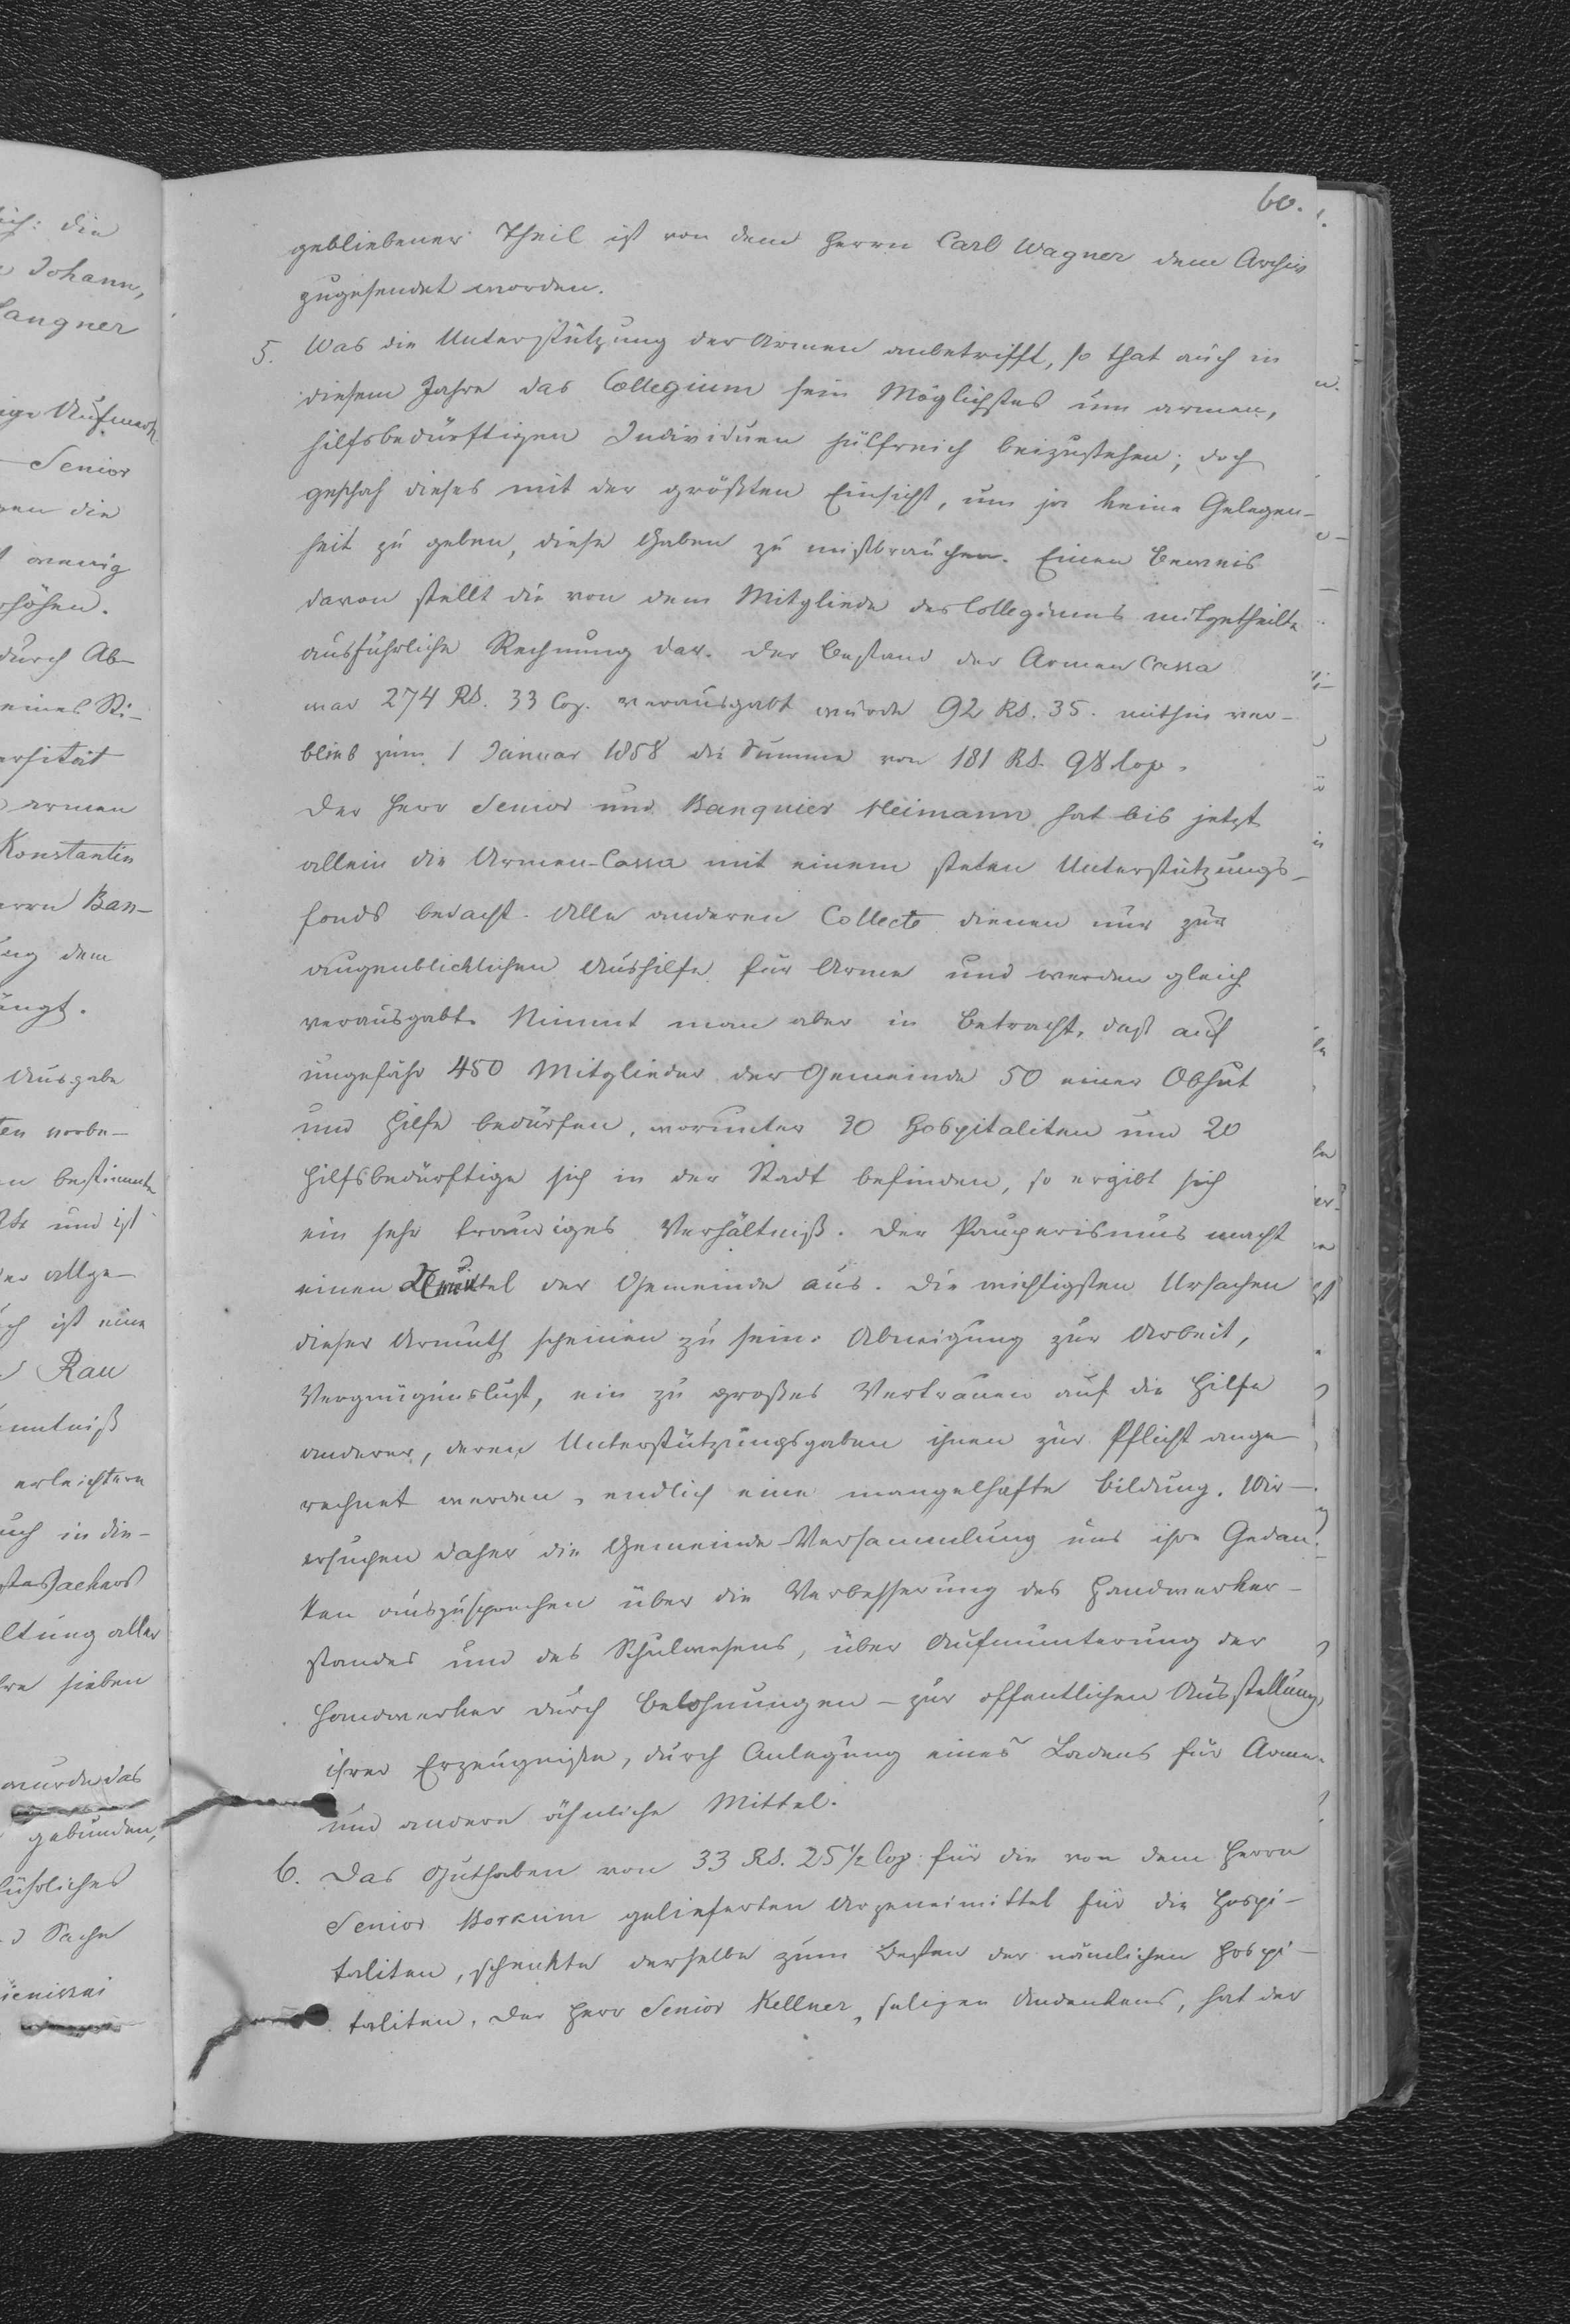 60.
gebliebener Theil ist von dem Herrn Carl Wagner dem Archiv
zugesendet worden.
5. Was die Unterstützung der Armen anbetrifft, so that auch in
diesem Jahre das Collegium sein Möglichstes um armen,
hilfsbedürftigen Individuen hülfreich beizustehen; doch
geschah dieses mit der größten Einsicht, um ja keine Gelegen-
heit zu geben, diese Gaben zu mißbrauchen. Einen Beweis
davon stellt die von dem Mitgliede des Collegiums mitgetheilte
ausführliche Rechnung dar. Der Bestand der Armen Cassa
war 274 RS. 33 Cop. verausgabt wurde 92 RS. 35. mithin ver-
blieb zum 1 Januar 1858 die Summe von 181 RS. 98 Cop.
Der Herr Senior und Banquier Heimann hat bis jetzt
allein die Armen-Cassa mit einem steten Unterstützungs-
fonds bedacht. Alle anderen Collecte dienen nur zur
augenblicklichen Aushilfe für Arme und werden gleich
verausgabt. Nimmt man aber in Betracht, daß auf
ungefähr 450 Mitglieder der Gemeinde 50 einer Obhut
und Hilfe bedürfen, worunter 30 Hospitaliten und 20
Hilfsbedürftige sich in der Stadt befinden, so ergibt sich
ein sehr trauriges Verhältniß. Der Pauperismus macht
einen der Gemeinde aus. Die wichtigsten Ursachen
dieser Armuth scheinen zu sein: Abneigung zur Arbeit,
Vergnügungslust, ein zu großes Vertrauen auf die Hilfe
anderer, deren Unterstützungsgaben ihnen zur Pflicht ange-
rechnet werden, endlich eine mangelhafte Bildung. Wir
ersuchen daher die Gemeinde-Versammlung uns ihre Gedan-
ken auszusprechen über die Verbesserung des Handwerker-
standes und des Schulwesens, über Aufmunterung der
Handwerker durch Belohnungen – zur offentlichen Ausstellung
ihrer Erzeugniße, durch Anlegung eines Ladens für Arme
und andere ähnliche Mittel.
6. Das Guthaben von 33 RS. 25 1/2 Cop. für die von dem Herrn
Senior Borkum gelieferten Arzeneimittel für die Hospi-
taliten, schenkte derselbe zum Besten der nämlichen Hospi-
taliten. Der Herr Senior Kellner, seligen Andenkens, hat der